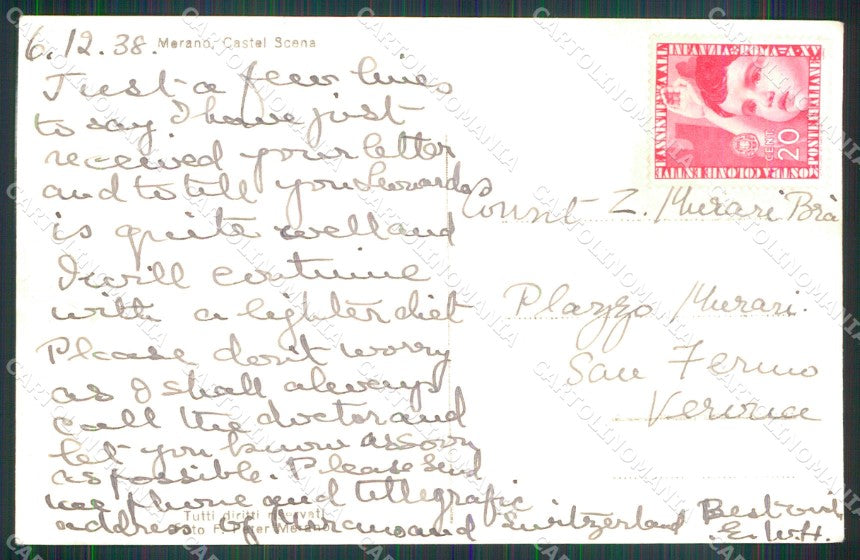 6.12.38. Merano, Castel Scena
Just a few lines
to say I have just
received your letter
and to tell you Leonardo
is quite well and
I will continue
with a lighter diet
Please don't worry
as I shall always
call the doctor and
let you know as soon
as possible. Please send
me phone and tillegrafic
address of and Switzerland
Best
E.W.H.
Tutti diritti riservati
Foto F. Peter Merano
Count Z. Murari Brà
Plazzo Murari.
San Fermo
Verona
E ASSISTENZA ALL
INFANZIA ROMA A XV
CENT 20
CARTOLINOMANIA